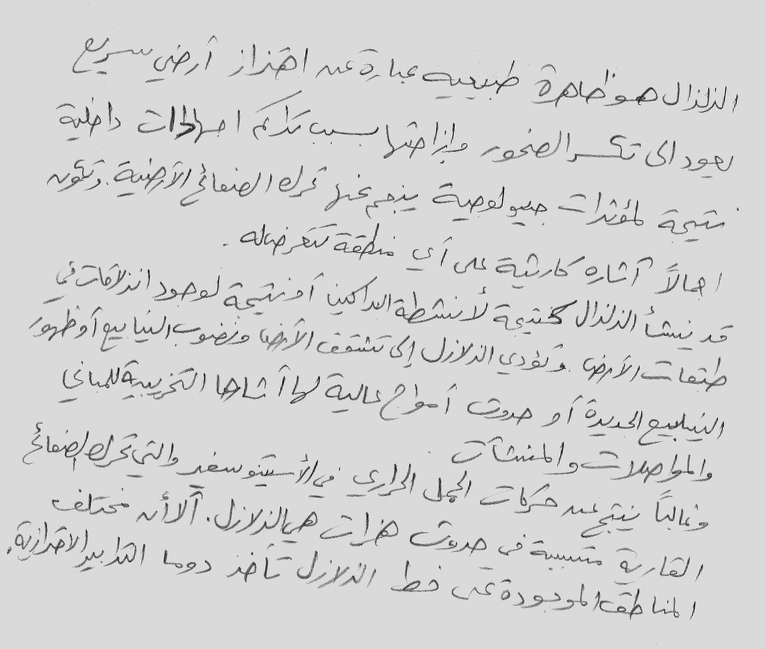 الزلزال هو ظاهرة طبيعيه عبارة عن اهتزاز أرضي سريع
يعود الى تكسر الصخور وإزاحتها بسبب تراكم اجهادات داخلية
نتيجة لمؤثرات جيولوجية ينجم عنها تحرك الصفائح الأرضية. وتكون
اجمالاً آثاره كارثية على أي منطقة تتعرض له.
قد ينشأ الزلزال كنتيجة لأنشطة البراكين أو نتيجة لوجود انزلاقات في
طبقات الأرض. وتؤدي الزلازل إلى تشقق الأرض ونضوب الينابيع أو ظهور
الينابيع الجديدة أو حدوث أمواج عالية لها آثارها التخريبية للمباني
والمواصلات والمنشآت
وغالباً ينتج عن حركات الحمل الحراري في الأسينوسفير والتي تحرك الصفائح
القارية متسببة في حدوث هزات هي الزلازل. ألا أن مختلف
المناطق الموجودة على خط الزلازل تأخذ دوما التدابير الاحترازية.